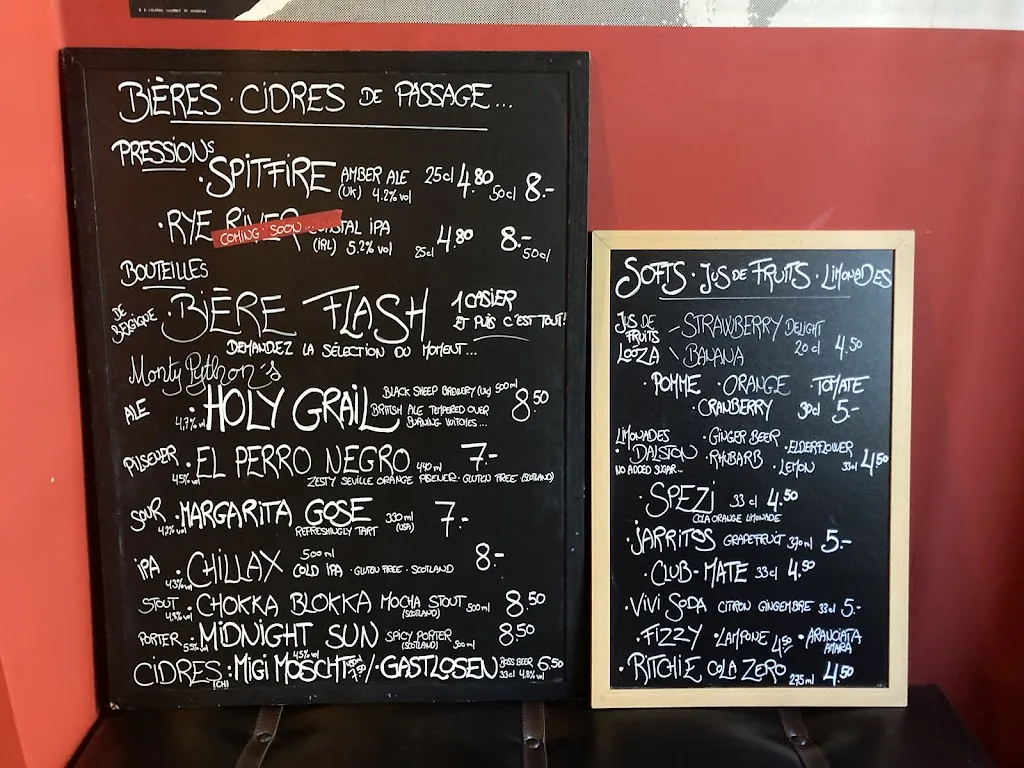 BIÈRES · CIDRES DE PASSAGE...
PRESSIONS
· SPITFIRE AMBER ALE (UK) 4.2% vol 25cl 4.80 50cl 8.-
· RYE RIVER COASTAL IPA (IRL) 5.2% vol 25cl 4.80 8.- 50cl
COMING SOON...
BOUTEILLES
DE BELGIQUE · BIÈRE FLASH 1 CASIER
ET PUIS C'EST TOUT!
DEMANDEZ LA SÉLECTION DU MOMENT...
Monty Python's
ALE 4.7% vol · HOLY GRAIL BLACK SHEEP BREWERY (UK) 500ml 8.50
BRITISH ALE TEMPERED OVER
BURNING WITCHES...
PILSENER 4.5% vol · EL PERRO NEGRO 440ml 7.-
ZESTY SEVILLE ORANGE PILSENER · GLUTEN FREE (SCOTLAND)
SOUR 4.2% vol · MARGARITA GOSE 330ml (USA) 7.-
REFRESHINGLY TART
IPA 4.3% vol · CHILLAX 500ml 8.-
COLD IPA · GLUTEN FREE · SCOTLAND
STOUT · CHOKKA BLOKKA MOCHA STOUT (SCOTLAND) 500ml 8.50
PORTER · MIDNIGHT SUN SPICY PORTER (SCOTLAND) 500ml 8.50
CIDRES (CH) : MIGI MOSCHT / · GASTLOSEN BOSS BEER 33cl 4.8% vol 6.50
SOFTS · JUS DE FRUITS · LIMONADES
JUS DE FRUITS LOOZA
STRAWBERRY DELIGHT
BANANA 20cl 4.50
· POMME · ORANGE · TOMATE
· CRANBERRY 30cl 5.-
LIMONADES DALSTON NO ADDED SUGAR...
· GINGER BEER · ELDERFLOWER
· RHUBARB · LEMON 33cl 4.50
· SPEZI 33 cl 4.50
COLA ORANGE LIMONADE
· JARRITOS GRAPEFRUIT 370ml 5.-
· CLUB-MATE 33cl 4.50
· VIVI SODA CITRON GINGEMBRE 33cl 5.-
· FIZZY · LAMPONE 4.50 · ARANCIATA AMARA
· RITCHIE COLA ZERO 275ml 4.50